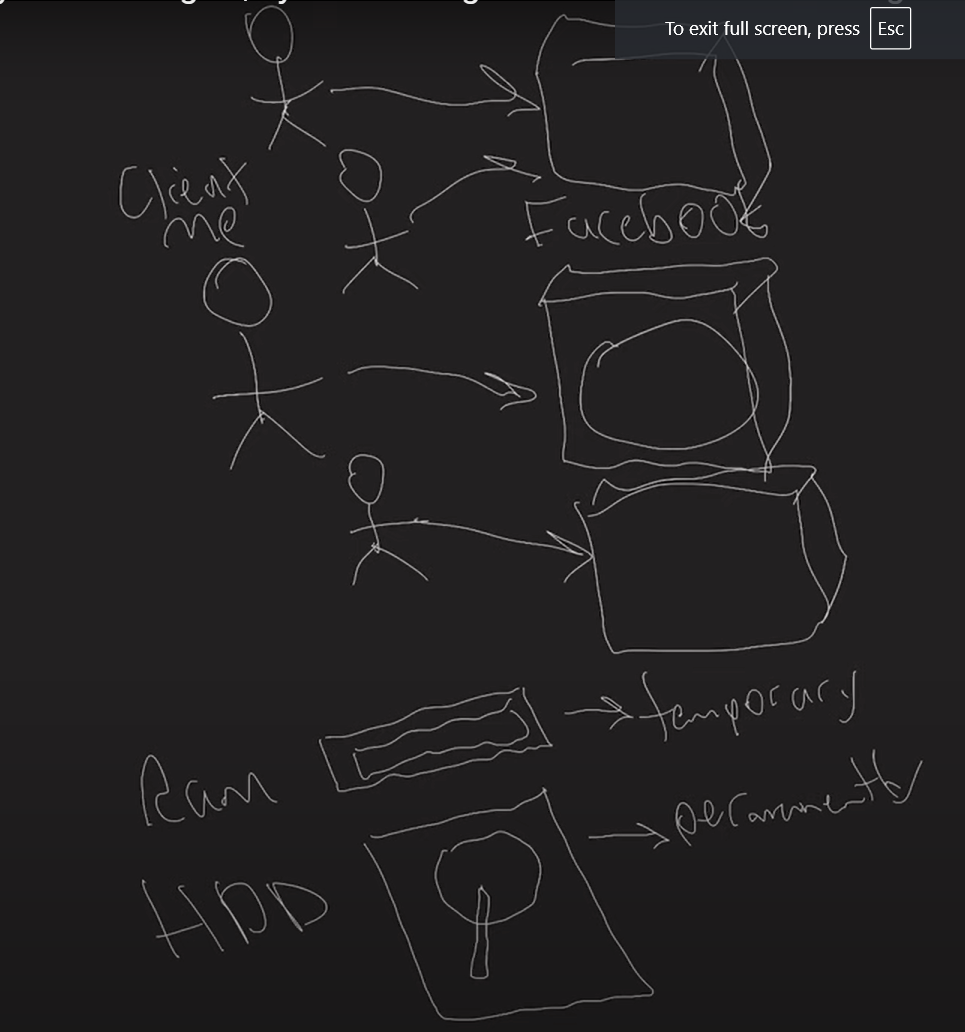 To exit full screen, press Esc
Client
me
Facebook
temporary
Ram
HDD